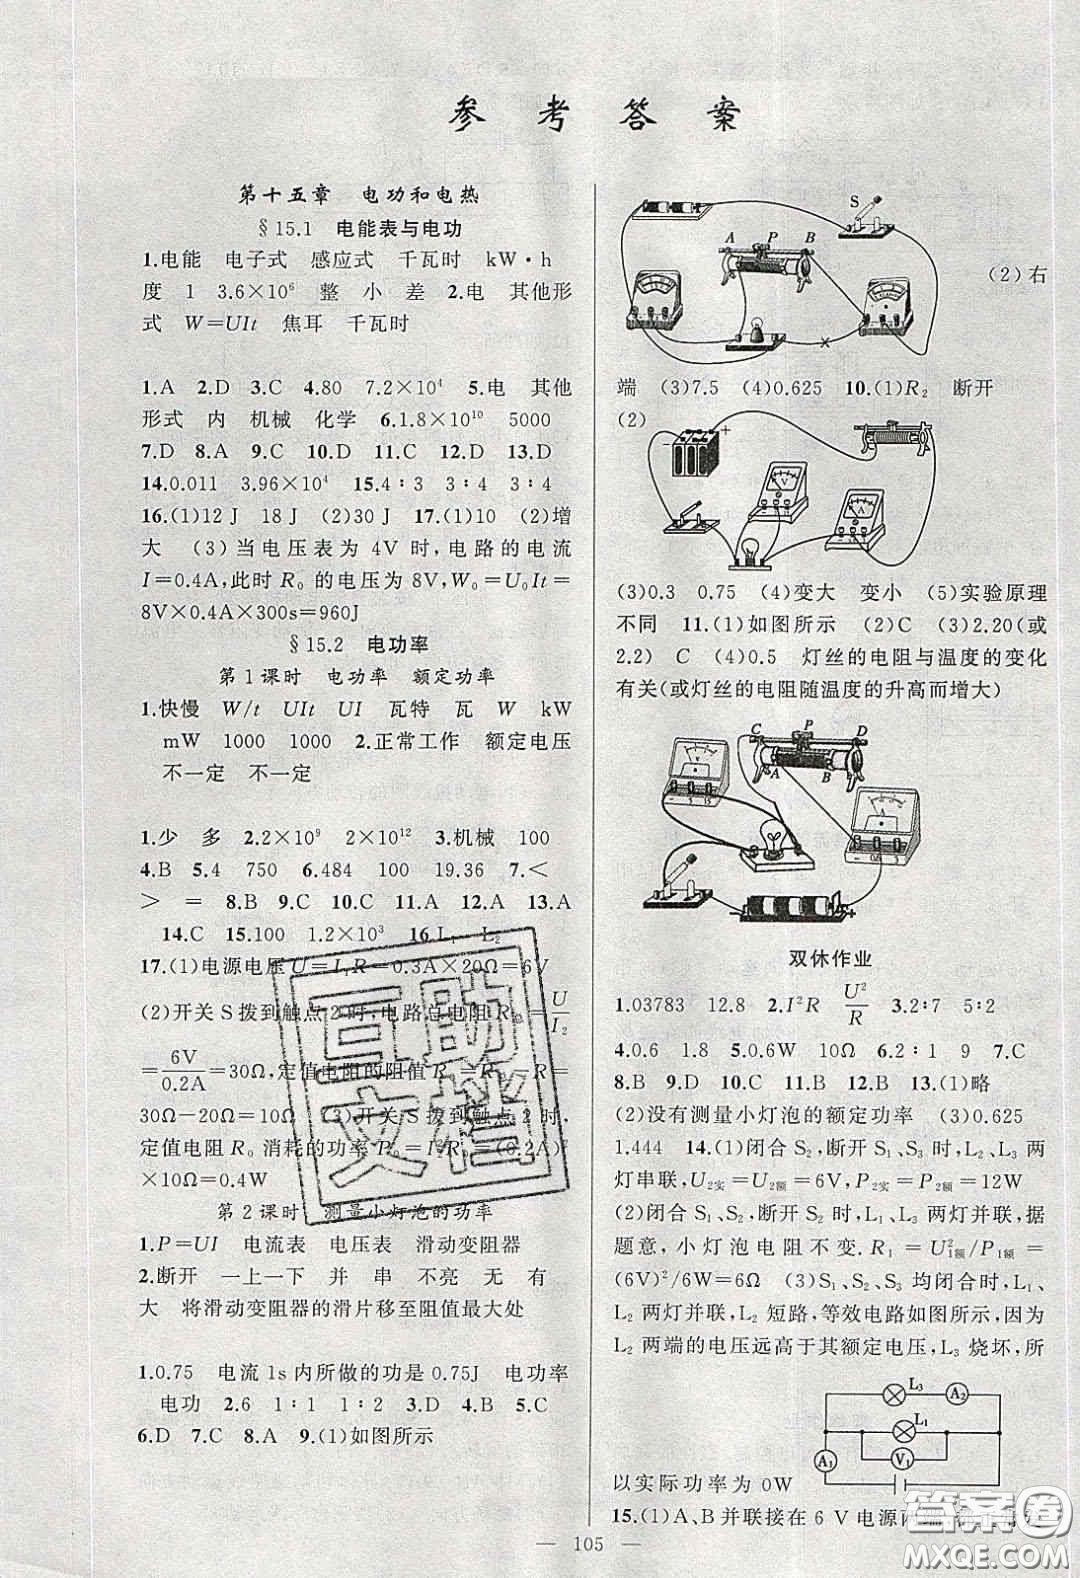 参考答案
第十五章 电功和电热
§15.1 电能表与电功
1.电能 电子式 感应式 千瓦时 kW·h
度 1 3.6×10⁶ 整 小 差 2.电 其他形
式 W=UIt 焦耳 千瓦时
1.A 2.D 3.C 4.80 7.2×10⁴ 5.电 其他
形式 内 机械 化学 6.1.8×10¹⁰ 5000
7.D 8.A 9.C 10.D 11.C 12.D 13.D
14.0.011 3.96×10⁴ 15.4∶3 3∶4 3∶4
16.(1)12 J 18 J (2)30 J 17.(1)10 (2)增
大 (3)当电压表为 4V 时,电路的电流
I=0.4A,此时 R₀ 的电压为 8V,W₀=U₀It=
8V×0.4A×300s=960J
§15.2 电功率
第1课时 电功率 额定功率
1.快慢 W/t UIt UI 瓦特 瓦 W kW
mW 1000 1000 2.正常工作 额定电压
不一定 不一定
1.少 多 2.2×10⁹ 2×10¹² 3.机械 100
4.B 5.4 750 6.484 100 19.36 7.<
> = 8.B 9.C 10.C 11.A 12.A 13.A
14.C 15.100 1.2×10³ 16.L₁ L₂
17.(1)电源电压U=I₁R=0.3A×20Ω=6V
(2)开关S拨到触点2时,电路总电阻R总=U/I₂
=6V/0.2A=30Ω,定值电阻的阻值R₀=R总-R=
30Ω-20Ω=10Ω (3)开关S拨到触点2时,
定值电阻R₀消耗的功率P₀=I₂²R₀=(0.2A)²
×10Ω=0.4W
第2课时 测量小灯泡的功率
1.P=UI 电流表 电压表 滑动变阻器
2.断开 一上一下 并 串 不亮 无 有
大 将滑动变阻器的滑片移至阻值最大处
1.0.75 电流1s内所做的功是0.75J 电功率
电功 2.6 1∶1 1∶2 3.D 4.B 5.C
6.D 7.C 8.A 9.(1)如图所示
S
A P B
(2)右
端 (3)7.5 (4)0.625 10.(1)R₂ 断开
(2)
+
V
A
(3)0.3 0.75 (4)变大 变小 (5)实验原理
不同 11.(1)如图所示 (2)C (3)2.20(或
2.2) C (4)0.5 灯丝的电阻与温度的变化
有关(或灯丝的电阻随温度的升高而增大)
C P D
A B
V
- 5 15
A
- 0.6 3
- +
双休作业
1.03783 12.8 2.I²R U²/R 3.2∶7 5∶2
4.0.6 1.8 5.0.6W 10Ω 6.2∶1 9 7.C
8.B 9.D 10.C 11.B 12.B 13.(1)略
(2)没有测量小灯泡的额定功率 (3)0.625
1.444 14.(1)闭合S₂,断开S₁、S₃时,L₁、L₂ 两
灯串联,U₂实=U₂额=6V,P₂实=P₂额=12W
(2)闭合S₁、S₃,断开S₂时,L₁、L₃两灯并联,据
题意,小灯泡电阻不变.R₁=U²₁额/P₁额=
(6V)²/6W=6Ω (3)S₁、S₂、S₃均闭合时,L₁、
L₃两灯并联,L₂短路,等效电路如图所示,因为
L₃两端的电压远高于其额定电压,L₃烧坏,所
L₃ A₂
L₁
A₁ V₁
以实际功率为0W
15.(1)A、B并联接在6 V电源两端
105
互助文档
答案圈
MXQE.COM